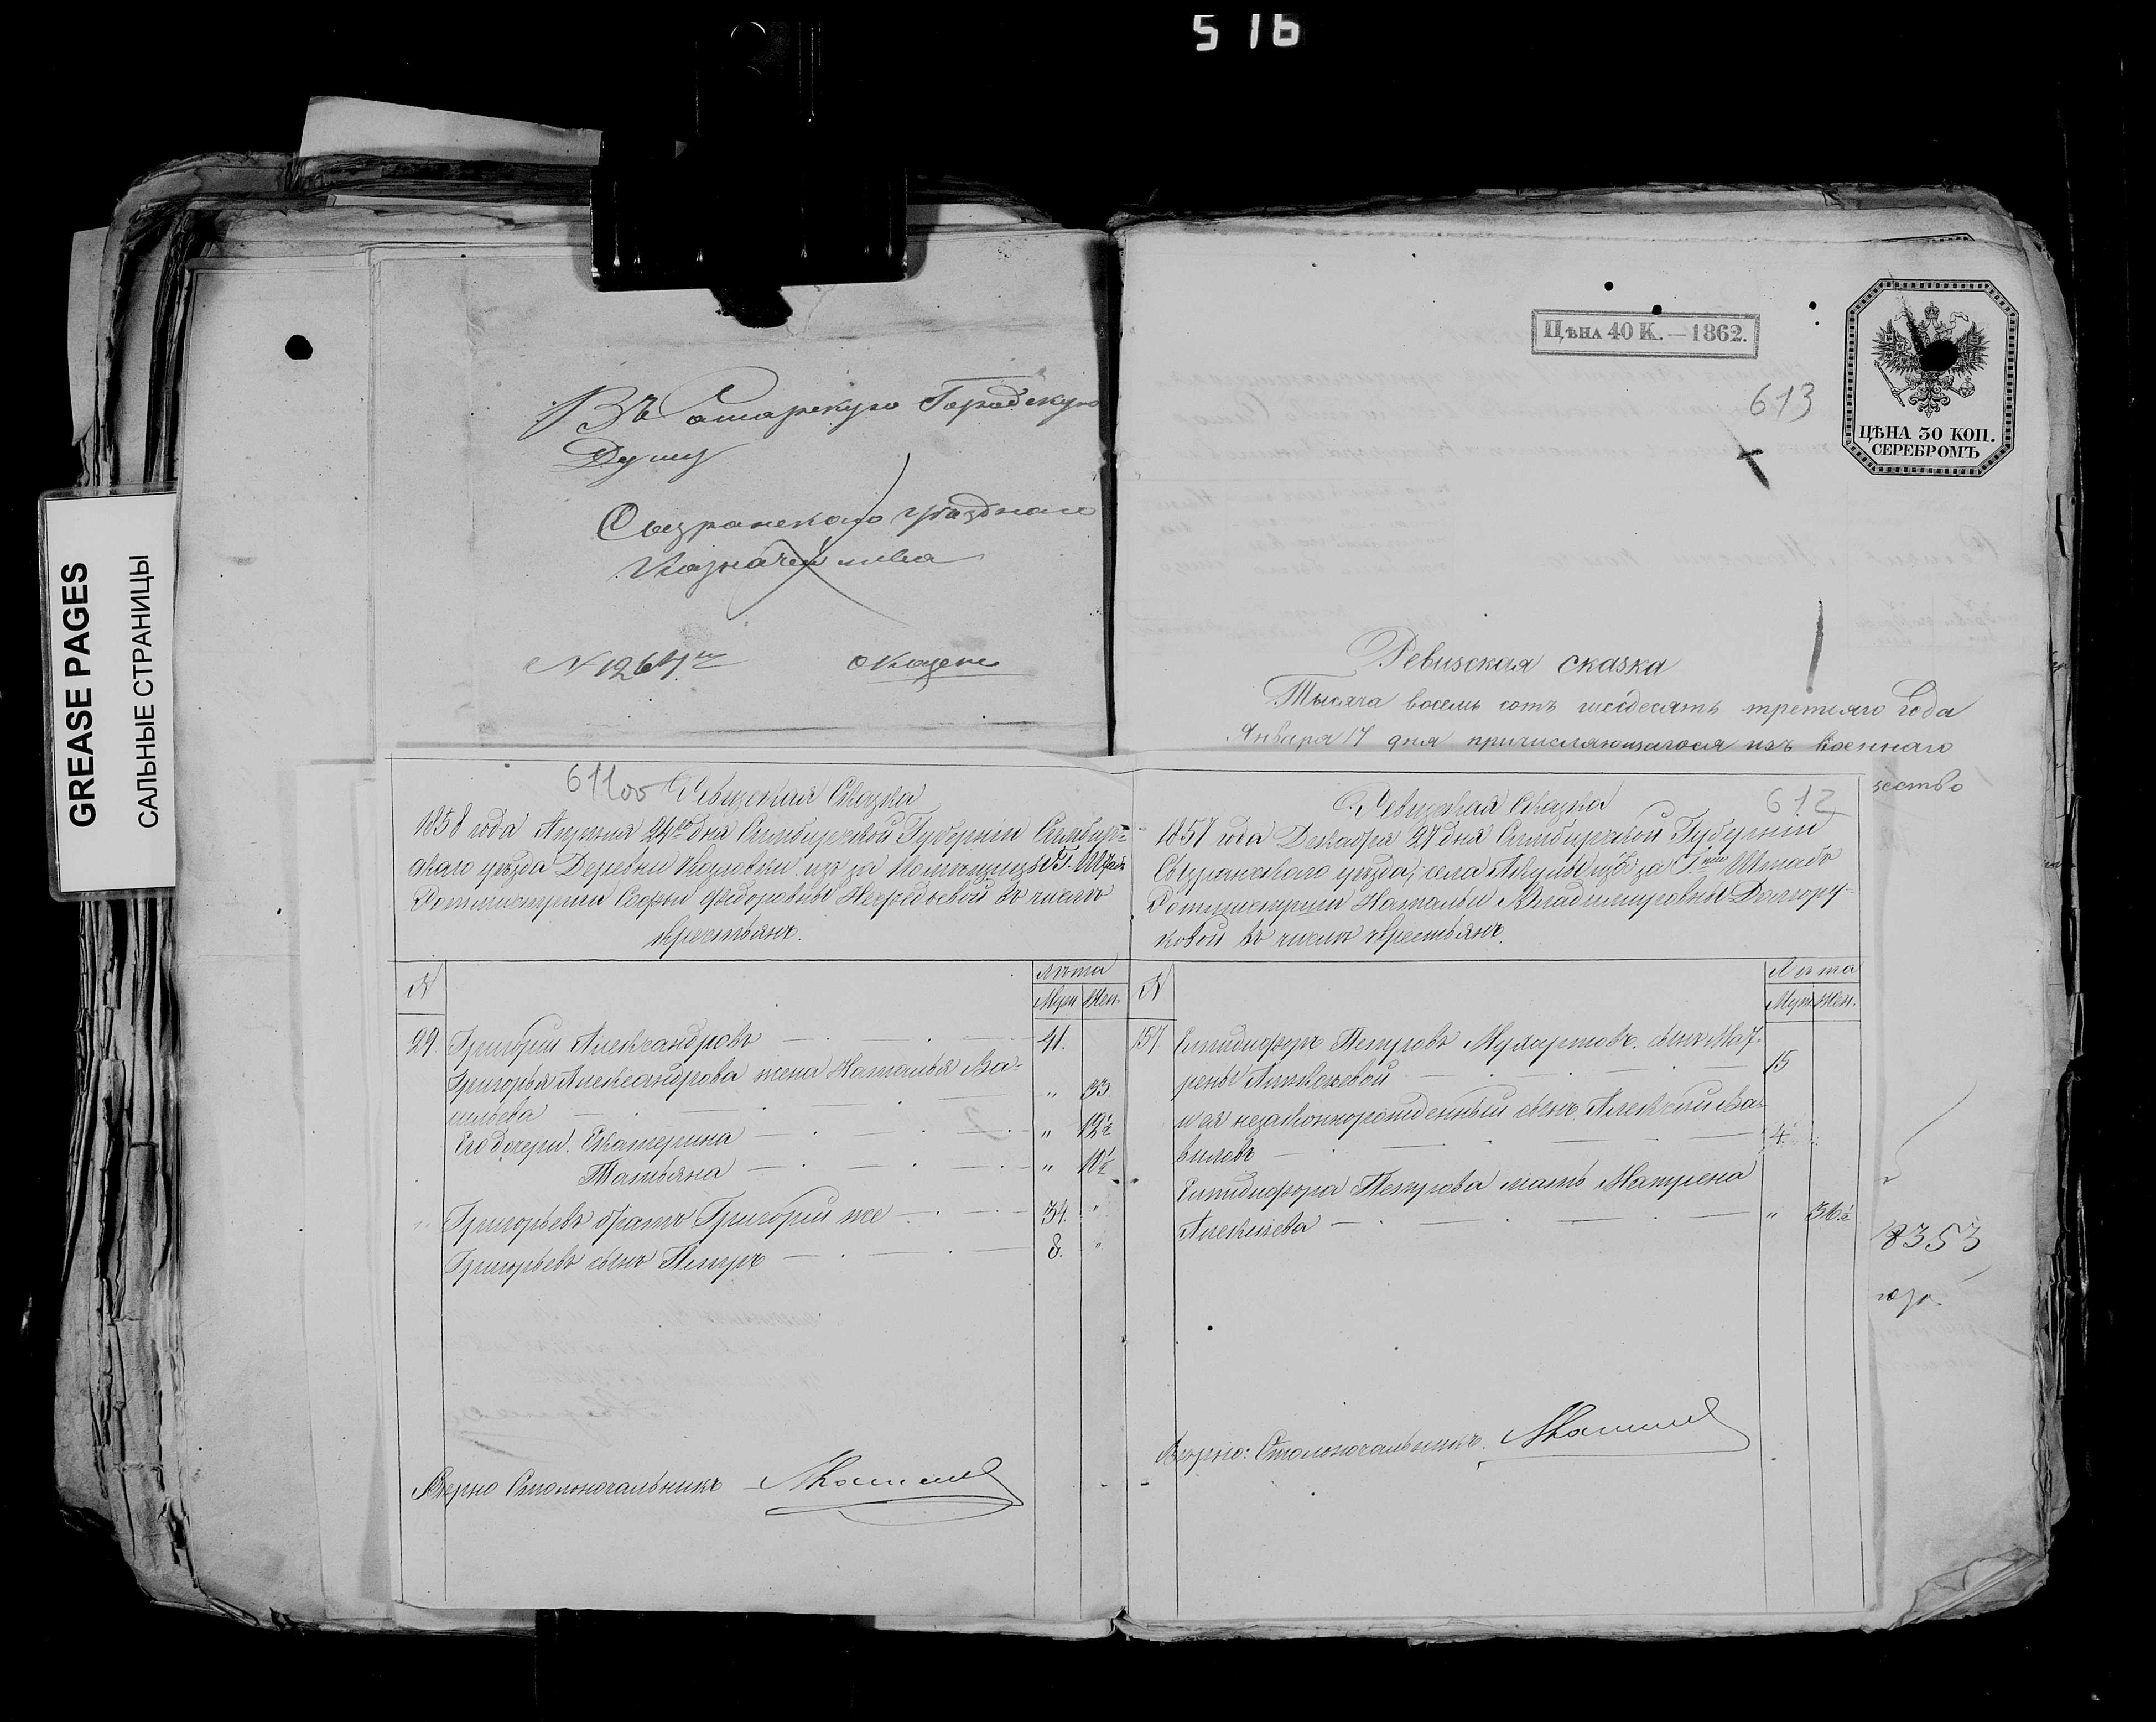 516
GREASE PAGES
САЛЬНЫЕ СТРАНИЦЫ
Въ Самарскую Городскую
Думу
Сызранскаго уѣзднаго
Казначейства
N 1264
о Казен
Цѣна 40 К. — 1862.
613
ЦѢНА 30 КОП.
СЕРЕБРОМЪ
Ревизская сказка
Тысяча восемь сотъ шесдесятъ третьяго Года
Января 17 дня причисляющагося изъ военнаго
чество
8353
года
611
Ревизская Сказка
1858 года Апреля 24го дня Симбирской Губерніи Симбир=
скаго уѣзда Деревни Козловки изъ за Помѣщицы Г. Штабъ
Ротмистрши Софьи Ѳедоровны Нефедьевой въ числѣ
крестьянъ.
N Лѣта
Муж Жен.
29. Григорій Александровъ 41.
Григорья Александрова жена Наталья Ва=
сильева " 33.
Его дочери: Екатерина " 12½
Татьяна " 10½
Григорьевъ братъ Григорій же 34. "
Григорьевъ сынъ Петръ 8. "
Вѣрно Столоначальникъ
612
Ревизская Сказка
1857 года Декабря 27 дня Симбирской Губерніи
Сызранскаго уѣзда, села Акулы изъ за Г. Штабъ
Ротмистрши Натальи Владимировны Долгору=
ковой въ числѣ крестьянъ.
N Лѣта
Муж. Жен.
157 Елпидифоръ Петровъ Мухартовъ. сынъ Мат=
рены Алексѣевой 15
и ея незаконнорожденный сынъ Алексѣй Ва=
виловъ 4. "
Елпидифора Петрова мать Матрена
Алексѣева " 36½
Вѣрно: Столоначальникъ